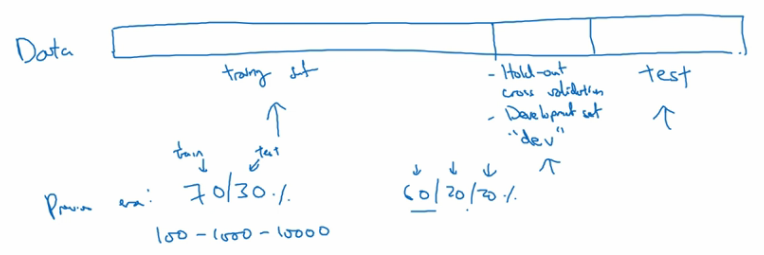 Data
training set
- Hold-out
cross validation
- Development set
"dev"
test
train test
Previous era: 70/30% 60/20/20%
100-1000-10000